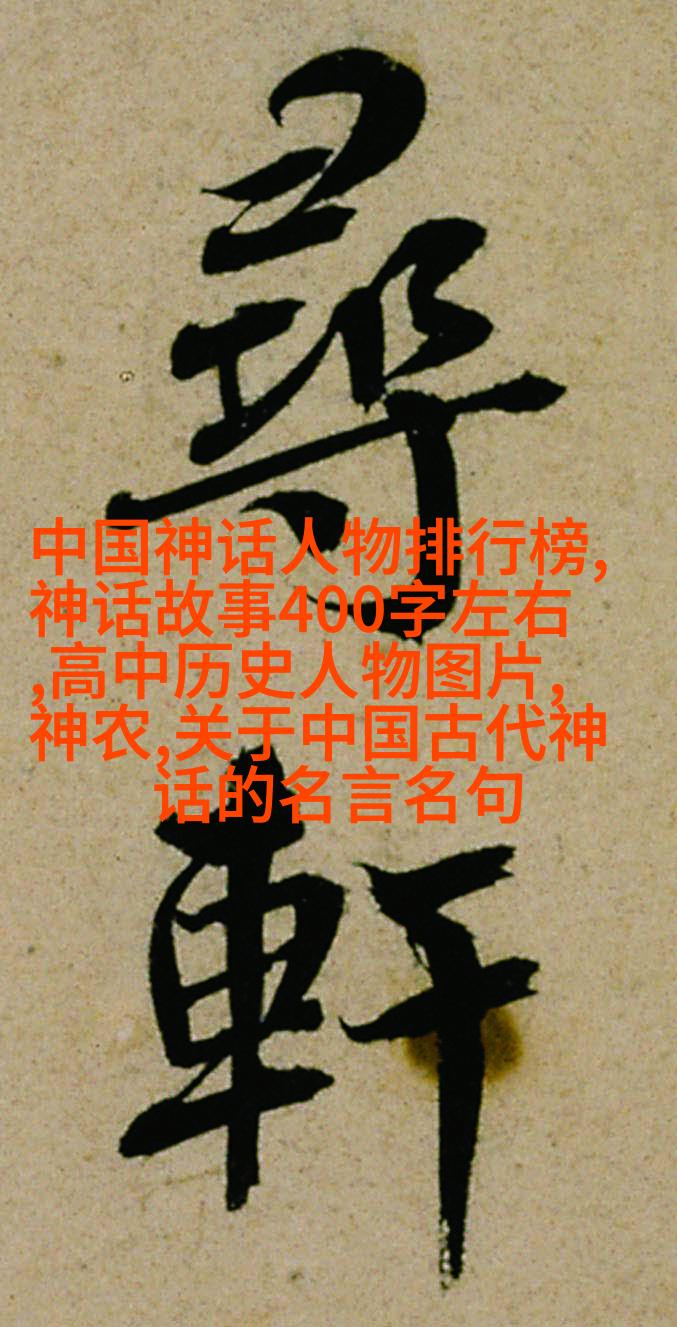 尋
軒
中国神话人物排行榜,
神话故事400字左右
,高中历史人物图片,
神农,关于中国古代神
话的名言名句